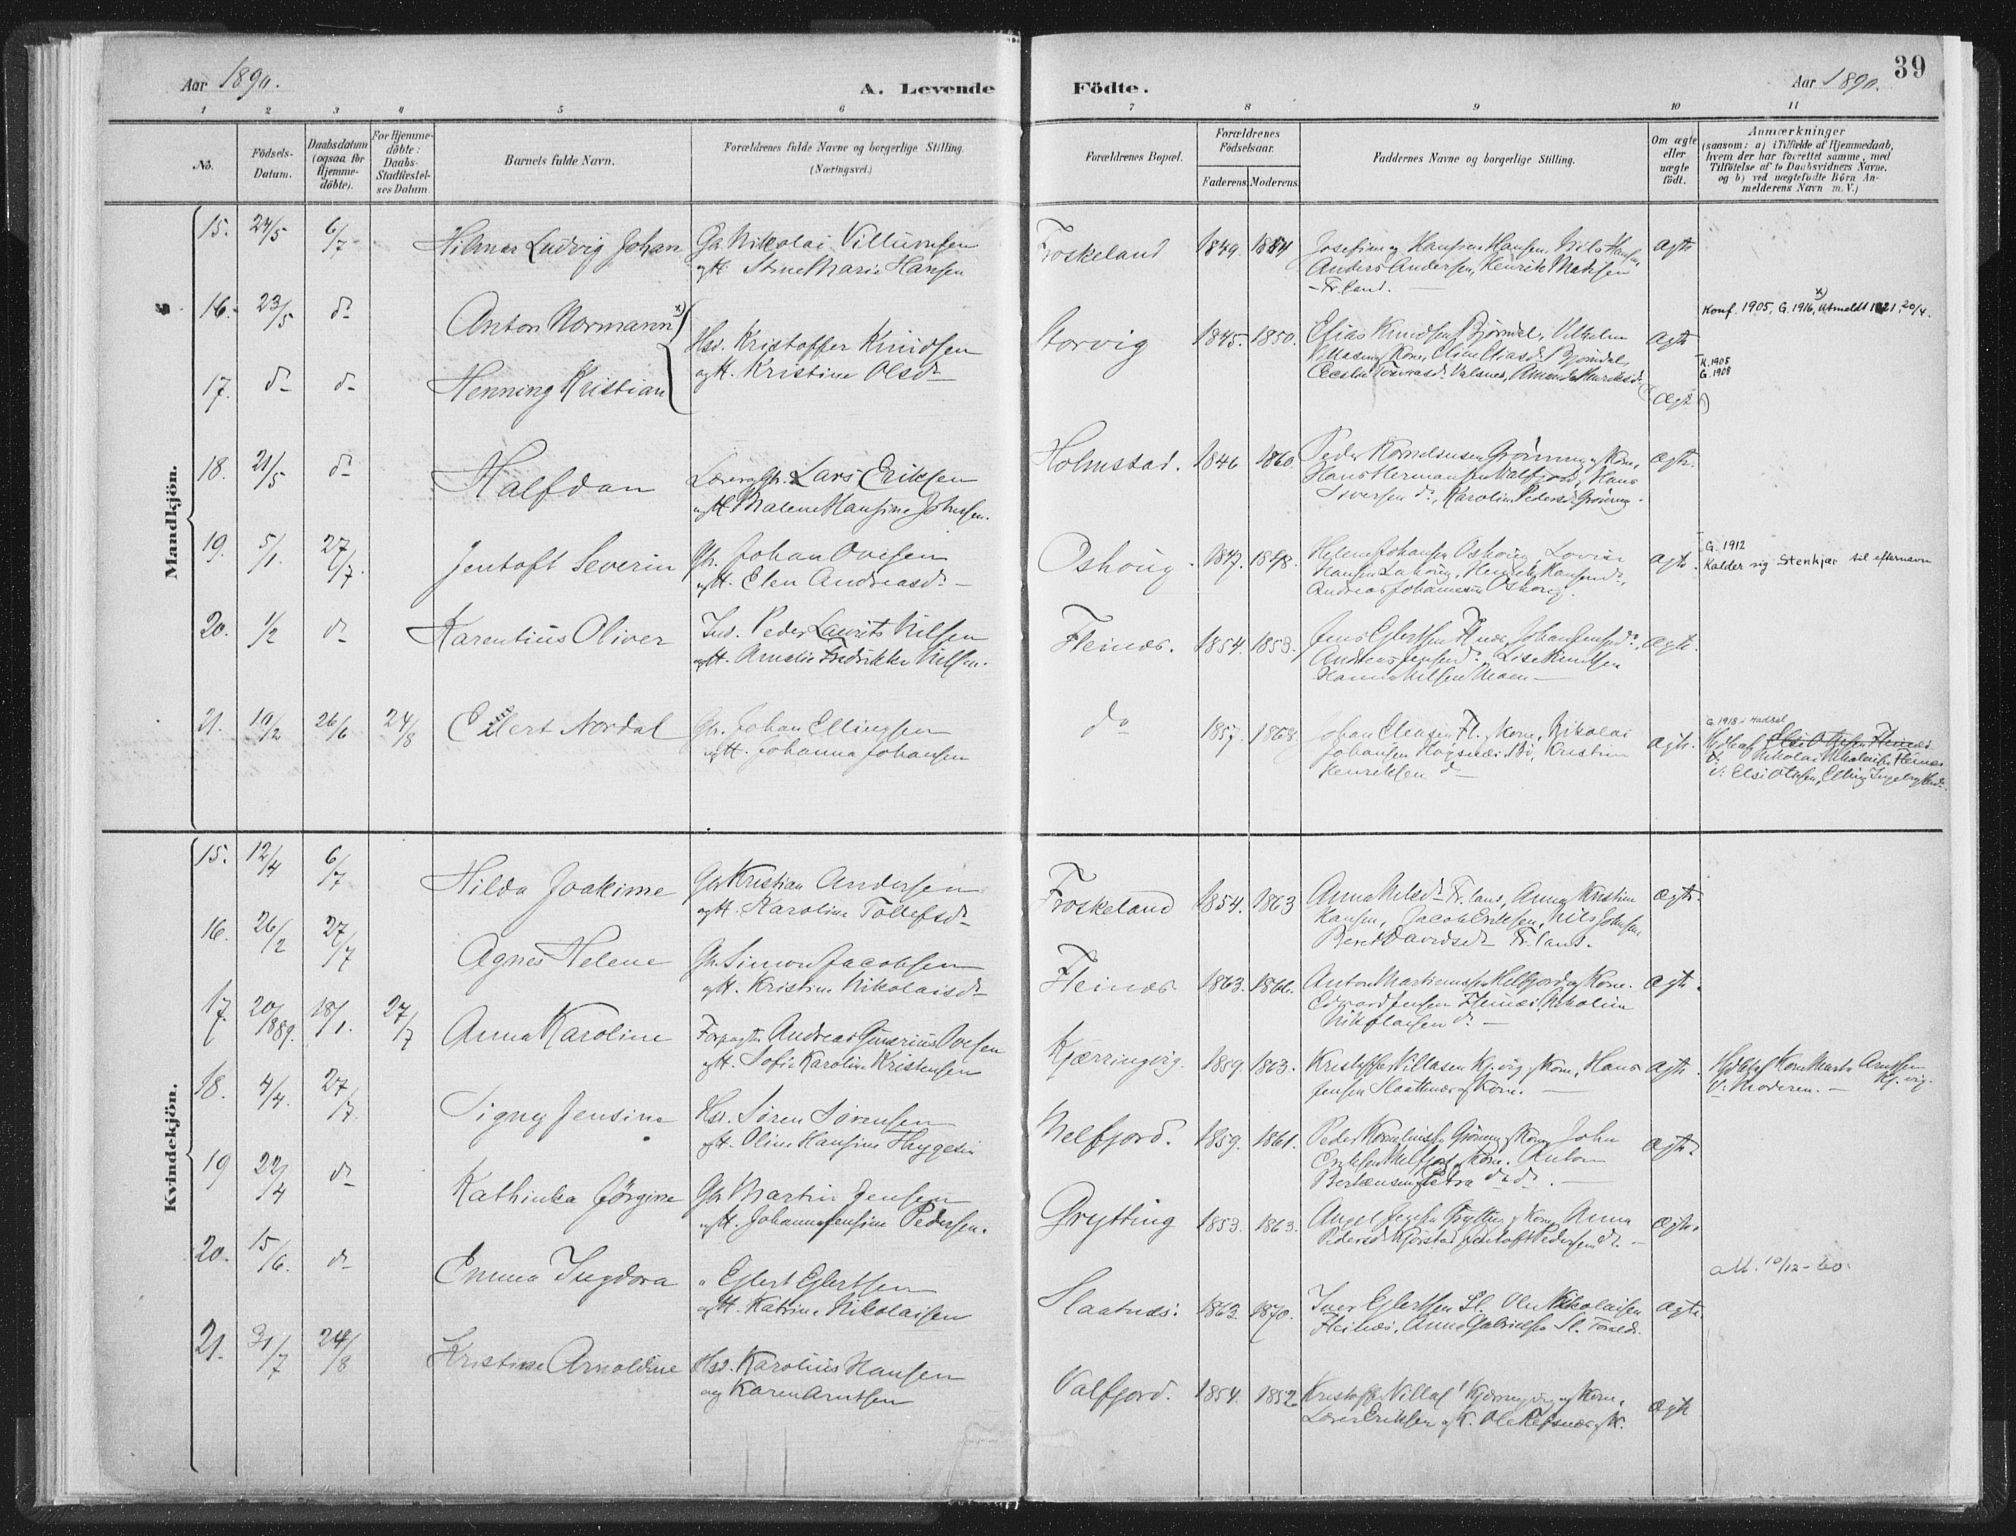 Aar 1890. A. Levende Födte. Aar 1890. 39
1 2 3 4 5 6 7 8 9 10 11
No. Födsels-Datum. Daabsdatum (ogsaa for Hjemme-döbte). For Hjemme-döbte: Daabs-Stadfæstel-ses Datum. Barnets fulde Navn. Forældrenes fulde Navne og borgerlige Stilling. (Næringsvei.)
Forældrenes Bopæl. Forældrenes Födselsaar. Faderens. Moderens. Faddernes Navne og borgerlige Stilling. Om ægte eller uægte födt. Anmærkninger
(saasom: a) i Tilfælde af Hjemmedaab,
hvem der har forrettet samme, med
Tilföielse af to Daabsvidners Navne.
og b) ved uægtefödte Börn An-
melderens Navn m. V.)
Mandkjön.
15. 24/5 6/7 Hilmar Ludvig Johan Gbr. Nikolai Villumsen
og H. Stine Marie Hansen
Froskeland 1849. 1854 Hansen, Nils Hansen
Anders Andersen, Henrik Madsen
- Fr.land. - ægte
16. 23/5 do Anton Normann x) Hsd. Kristoffer Knudsen
og H. Kristine Olsdr
Storvig 1845. 1850. Elias Knudsen Bjørndal, Vilhelm
ægte
x)
Konf. 1905, G. 1916, Utmeldt 1921, 20/4.
17. do do Henning Kristian
ægte
K. 1905
G. 1908
18. 21/5 do Halfdan Lars Eriksen
og H. Malene Hansine Johnsen.
Holmstad. 1846 1860. Peder Korneliussen Grönning og Kone,
Hans Hermansen Valfjord, Hans
Iversen do, Karoline Pedersdr Grönning. ægte.
19. 5/1. 27/7. Jentoft Severin Gbr. Johan Ovesen
og H. Elen Andreasdr
Oshoug. 1847. 1848. Helene Johansen Oshoug, Lovise
Hansen, Henrik Hansen do,
Andreas Johannesen Oshoug. ægte.
G. 1912
Kalder sig Stenkjær til efternavn
20. 1/2 do Karentius Oliver Ind. Peder Laurits Nilsen
og H. Amalie Fredrikke Nilsen.
Fleinæs. 1854. 1853. Jens Eglertsen Fl.næs, Johan Jensen do,
Andreas Jensen do, Lise Knudsen
Hanna Nilsen Moen - ægte.
21. 19/2 26/6 24/8 Eilert Nordal Gbr. Johan Ellingsen
og H. Johanna Johansen
do 1857. 1868. Johan Fl. Kone, Nikolai
Johansen Bø, Kristine
Henriksen do ægte.
G. 1918 i Hadsel
Hjdbt af Elsi Olsen Fleinæs
Nikolai Nikolaisen Fleinæs
V: Elsi Olsen,
Kvindekjön.
15. 12/4 6/7 Hilda Joakime Gbr Kristian Andersen
og H. Karoline Tollefsdr
Froskeland 1854. 1863 Anna Nilsdr Fr.land, Anna Kristine
Hansen, Jacob Eriksen, Nils Johnsen
Beret Davidsdr Fr.land. ægte.
16. 26/2 27/7 Agnes Helene Gbr. Simon Jacobsen
og H. Kristine Nikolaisdr
Fleinæs 1863. 1866. Anton Martinussen Melfjord og Kone.
Edvard Jensen Fleinæs, Nikoline
Nikolaisen do - ægte.
17. 20/1889. 18/1. 27/7 Anna Karoline Forpagter Andreas Gunerius Ovesen
og H. Sofie Karoline Kristensen
Kjærringvig. 1859. 1863. Kristoffer Villasen Kj.vig og Kone, Hans
Jensen Slaatnæs og Kone. ægte.
Hjdbt af Kone Marta Arntsen
V: Moderen. - Kj.vig.
18. 4/4. 27/7. Signey Jensine Hsd. Sören Sörensen
og H. Oline Hansine Heggesen
Melfjord. 1859. 1861. Peder Korneliussen Grönning og Kone, John
Eriksen Melfjord og Kone. Anton
Bertensen og Petra do do. - ægte.
19 22/4 do Kathinka Jörgine Gbr Martin Jensen
og H. Johanna Jensine Pedersen.
Grytting 1853. 1863. Grytting og Kone, Anna
Pedersdr Kjörstad, Jentoft Pedersen do. - ægte.
20. 15/6. do Emma Ingdora " Eglert Eglertsen
og H. Katrine Nikolaisen
Slaatnæs. 1863 1870. Iver Eglertsen Sl. Ole Nikolaisen
Fleinæs, Anna Gabrielsen Sl. ægte.
M. 10/12-60.
21. 31/7 24/8 Kristine Arnoldine Hsd. Karolius Hansen
og Karen Arntsen
Valfjord. 1854. 1852. Kristoffer Villas. Kjærringvig og Kone,
Lærer Eriksen og K. Ole Refsnæs og K. ægte